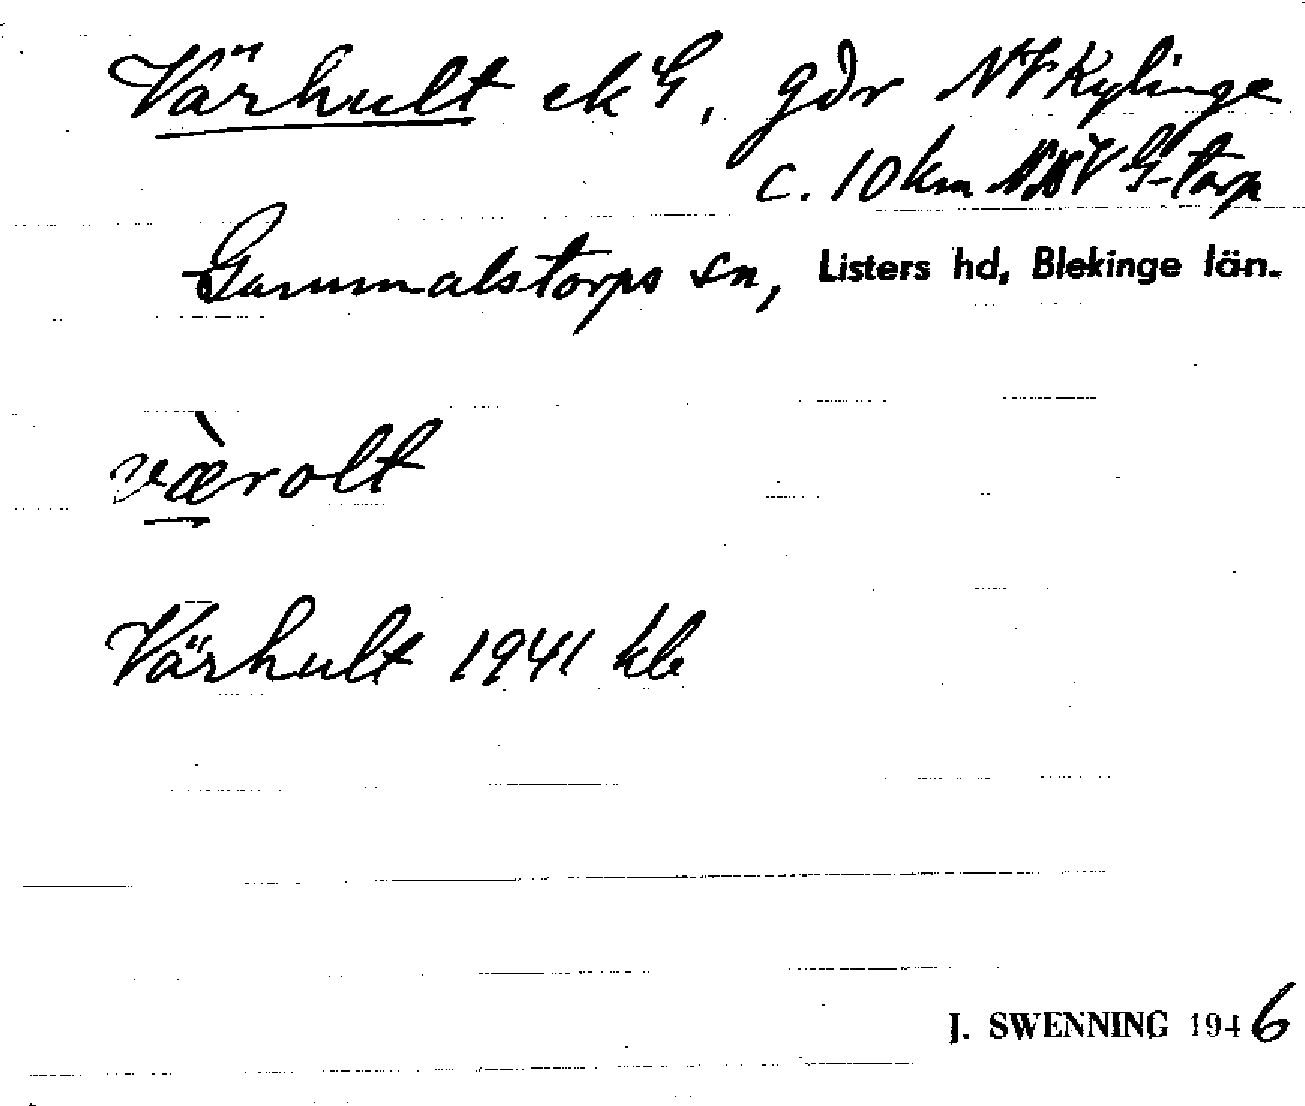 Värhult ek G, gdr NV Kylinge
c. 10 km NNV G-torp
Gammalstorps sn, Listers hd, Blekinge län.
værolt
Värhult 1941 kb
J. SWENNING 1946